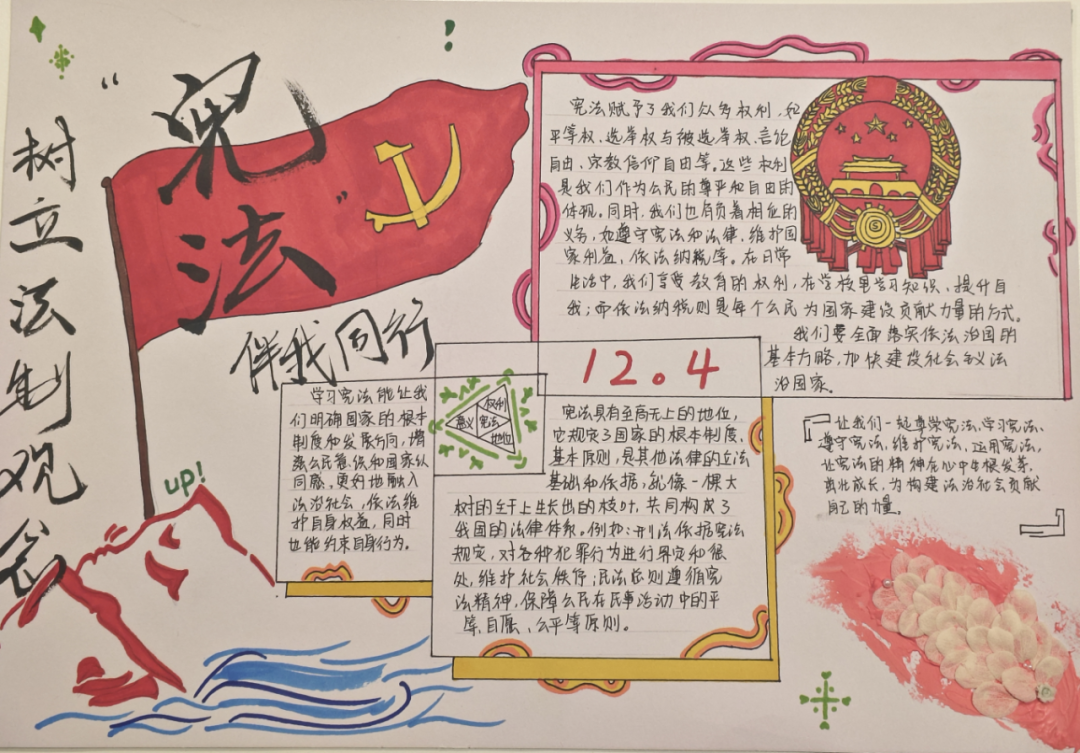 树立法制观念
“宪法”
伴我同行
up!
宪法赋予了我们众多权利,如
平等权、选举权与被选举权、言论
自由、宗教信仰自由等。这些权利
是我们作为公民的尊严和自由的
体现。同时,我们也肩负着相应的
义务,如遵守宪法和法律、维护国
家利益,依法纳税等。在日常
生活中,我们享受教育的权利,在学校里学习知识、提升自
我;而依法纳税则是每个公民为国家建设贡献力量的方式。
我们要全面落实依法治国的
基本方略,加快建设社会主义法
治国家
12.4
学习宪法能让我
们明确国家的根本
制度和发展方向,增
强公民意识和国家认
同感,更好地融入
法治社会,依法维
护自身权益,同时
也能约束自身行为。
权利
意义
宪法
地位
宪法具有至高无上的地位,
它规定了国家的根本制度、
基本原则,是其他法律的立法
基础和依据,就像一棵大
树的主干上生长出的枝叶,共同构成了
我国的法律体系。例如:刑法依据宪法
规定,对各种犯罪行为进行界定和惩
处,维护社会秩序;民法总则遵循宪
法精神,保障公民在民事活动中的平
等、自愿、公平等原则。
让我们一起尊崇宪法、学习宪法、
遵守宪法、维护宪法、运用宪法,
让宪法的精神在心中生根发芽,
茁壮成长,为构建法治社会贡献
自己的力量。